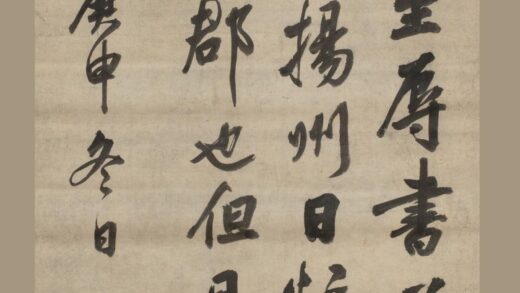 至辱書
揚州日
郡也但
庚申冬日